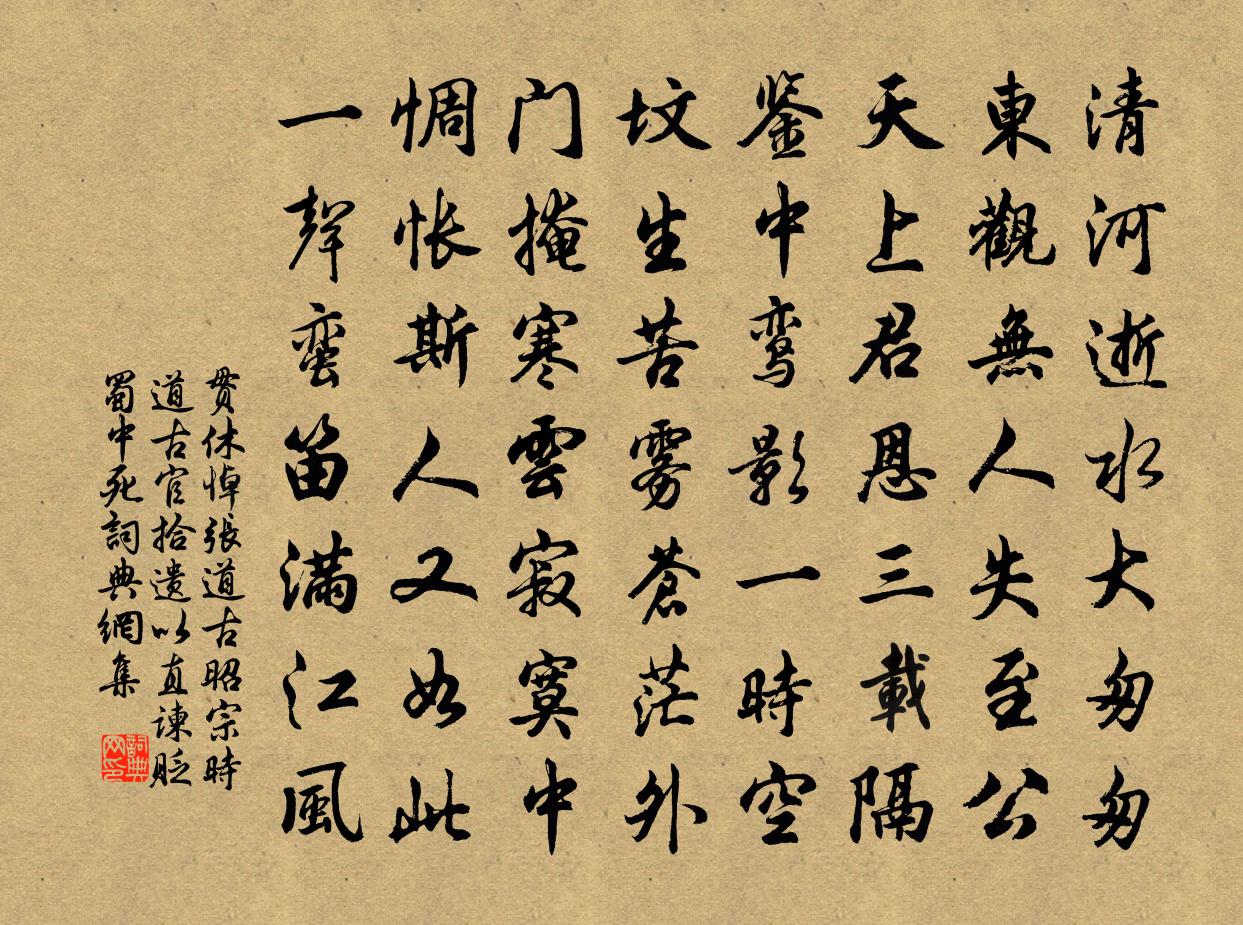 清河逝水大匆匆
東觀無人失至公
天上君恩三載隔
鉴中鸾影一時空
坟生苦雾蒼茫外
门掩寒雲寂寞中
惆怅斯人又如此
一聲蛮笛满江風
貫休悼張道古昭宗時
道古官拾遺以直諫貶
蜀中死詞典網集
詞典
网印